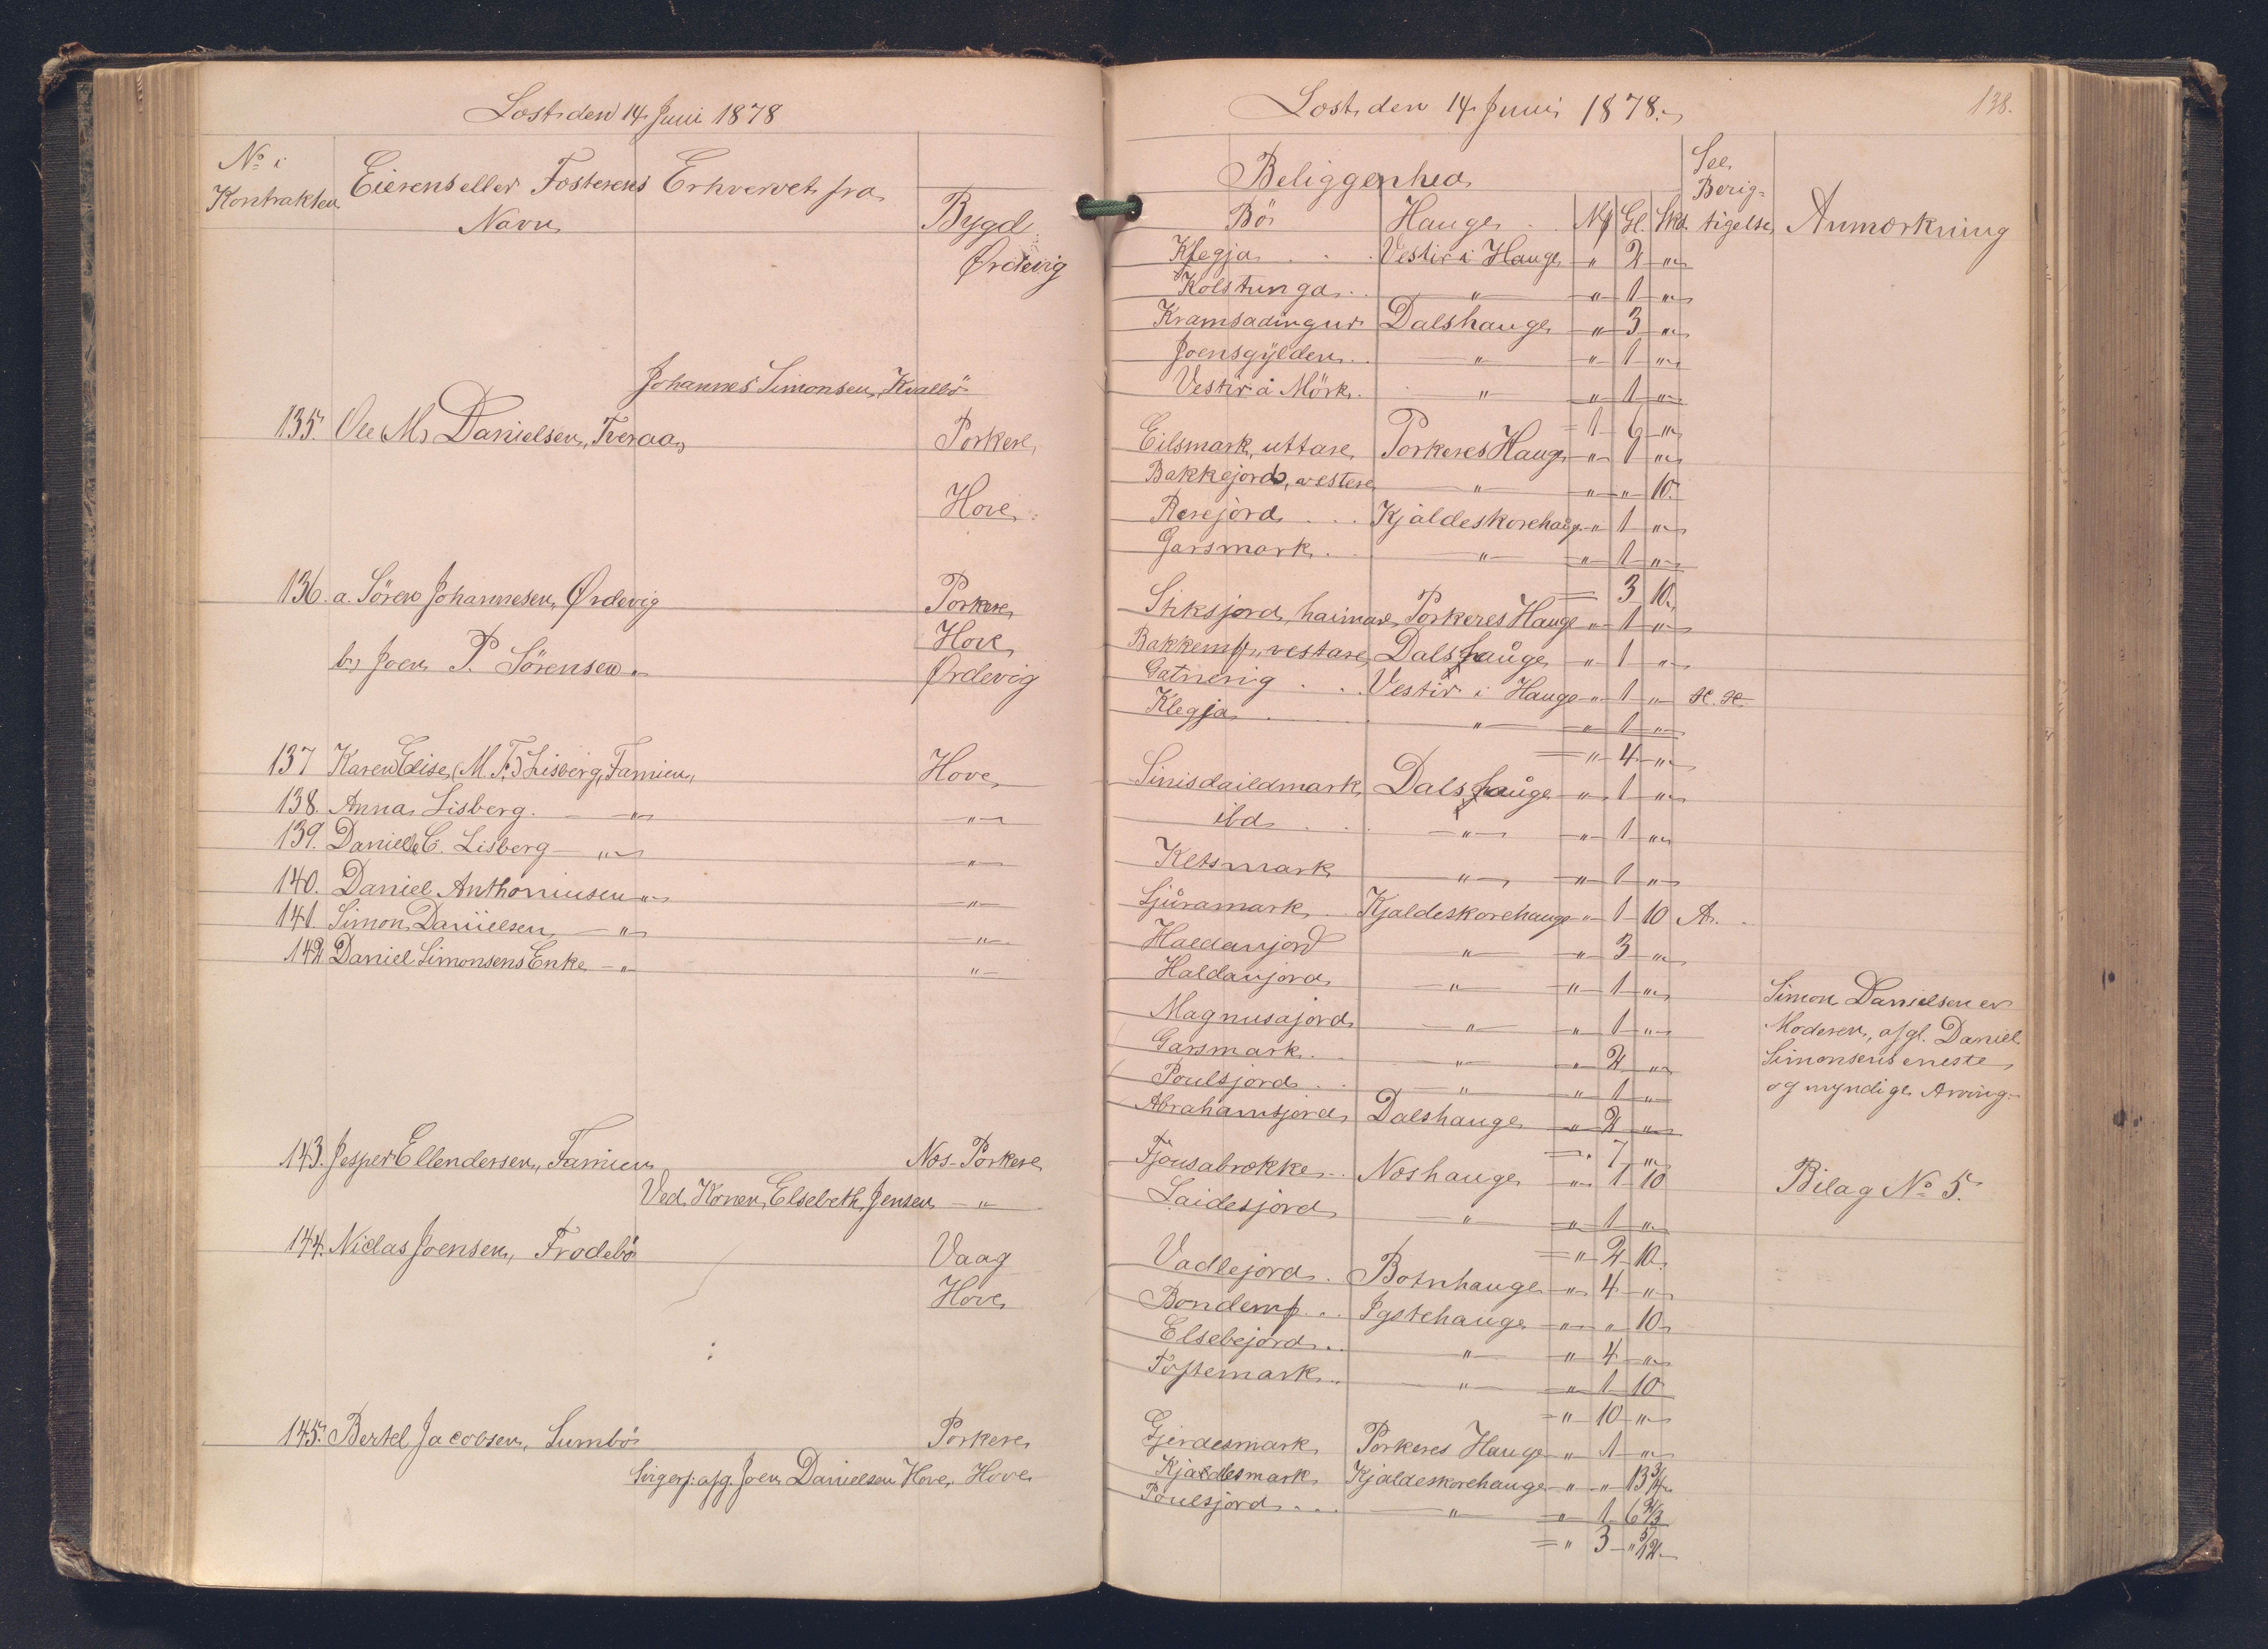 Lost. den 14 Juni 1878
No i Kontrakten
Eierens eller Fosterens Navn
Erhvervet fra
Bygd
Ørdevig
Johannes Simonsen, Kvalbö
135. Ole M. Danielsen, Tveraa Porkere
Hove
136. a. Sören Johannesen, Ørdevig Porkere
Hove
b. Joen P. Sörensen " Ørdevig
137 Karen Elise (M. F.) Lisberg, Famien, Hove
138. Anna Lisberg. " "
139. Daniel C. Lisberg " "
140. Daniel Anthoniusen " "
141. Simon Danielsen " "
142 Daniel Simonsens Enke " "
143. Jesper Ellendersen, Famien Nos-Porkere
Ved Konen, Elsebeth Jensen "
144. Niclas Joensen, Frodebö Vaag
Hove
145. Bertel Jacobsen, Sumbö Porkere
afg. Joen Danielsen Hove, Hove
Lost. den 14 Juni 1878.
138.
Beliggenhed
See Berigtigelse
Anmærkning
Bö Hauge Mk Gl. Skd.
Klegja Vestir i Hauge " 2 "
Kolstunga " " 1 "
Kramsadingur Dalshauge " 3 "
Joensgylden " " 1 "
Vestir å Mörk " " 1 "
= 1 6 "
Eilsmark, uttare Porkeres Hauge " 1 "
Bakkejord, vestere " " " 10.
Resejord Kjaldeskorehauge " 1 "
Garsmark " " 1 "
= 3 10
Stiksjord, haimare Porkeres Hauge " 1 "
Bakkemk, vestare Dalshauge " 1 "
Gatnerig Vestir i Hauge " 1 "
Klegja " " 1 "
= " 4 "
Sinisdaildmark Dalshauge " 1 "
ibd " " 1 "
Kltsmark " " 1 "
Ljúramark Kjaldeskorehauge " 1 10 A.
Haldanjord " " 3 "
Haldanjord " " 1 "
Magnusajord " " 1 "
Garsmark " " 2 "
Poulsjord " " 1 "
Abrahamsjord Dalshauge " 2 "
= " 7 "
Simon Danielsen er
Moderen, afgl. Daniel
Simonsens eneste
og myndige Arving.
Tjörsabrokke Noshauge " 1 10 Bilag No 5.
Laidesjord " " 1 "
= " 2 10
Vadlejord Botnhauge " 4 "
Bondemk Igstehauge " " 10
Elsebejord " " 4 "
Toftemark " " 1 10
= " 10 "
Gjerdesmark Porkeres Hauge " 1 "
Kjaldesmark Kjaldeskorehauge " " 13 3/4
Poulsjord " " 1 6 2/3
= " 3 " 5/12